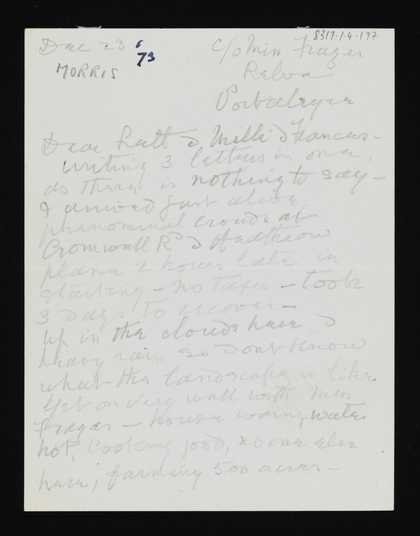 8317.1.4.197
Dec 23 '73
MORRIS
c/o Miss Frazer
Relva
Portballyntr
Dear Lett & Milli & Frances -
writing 3 letters in one,
as there is nothing to say -
I arrived just alive
phenominal crowds at
Cromwall Rd & Heathrow
plane 2 hours late in
starting - no taxis - took
3 days to recover -
up in the clouds here &
heavy rain so dont know
what the landscape is like.
Get on very well with Miss
Frazer - house warm, water
hot, Cooking good, no one else
here, farming 500 acres -